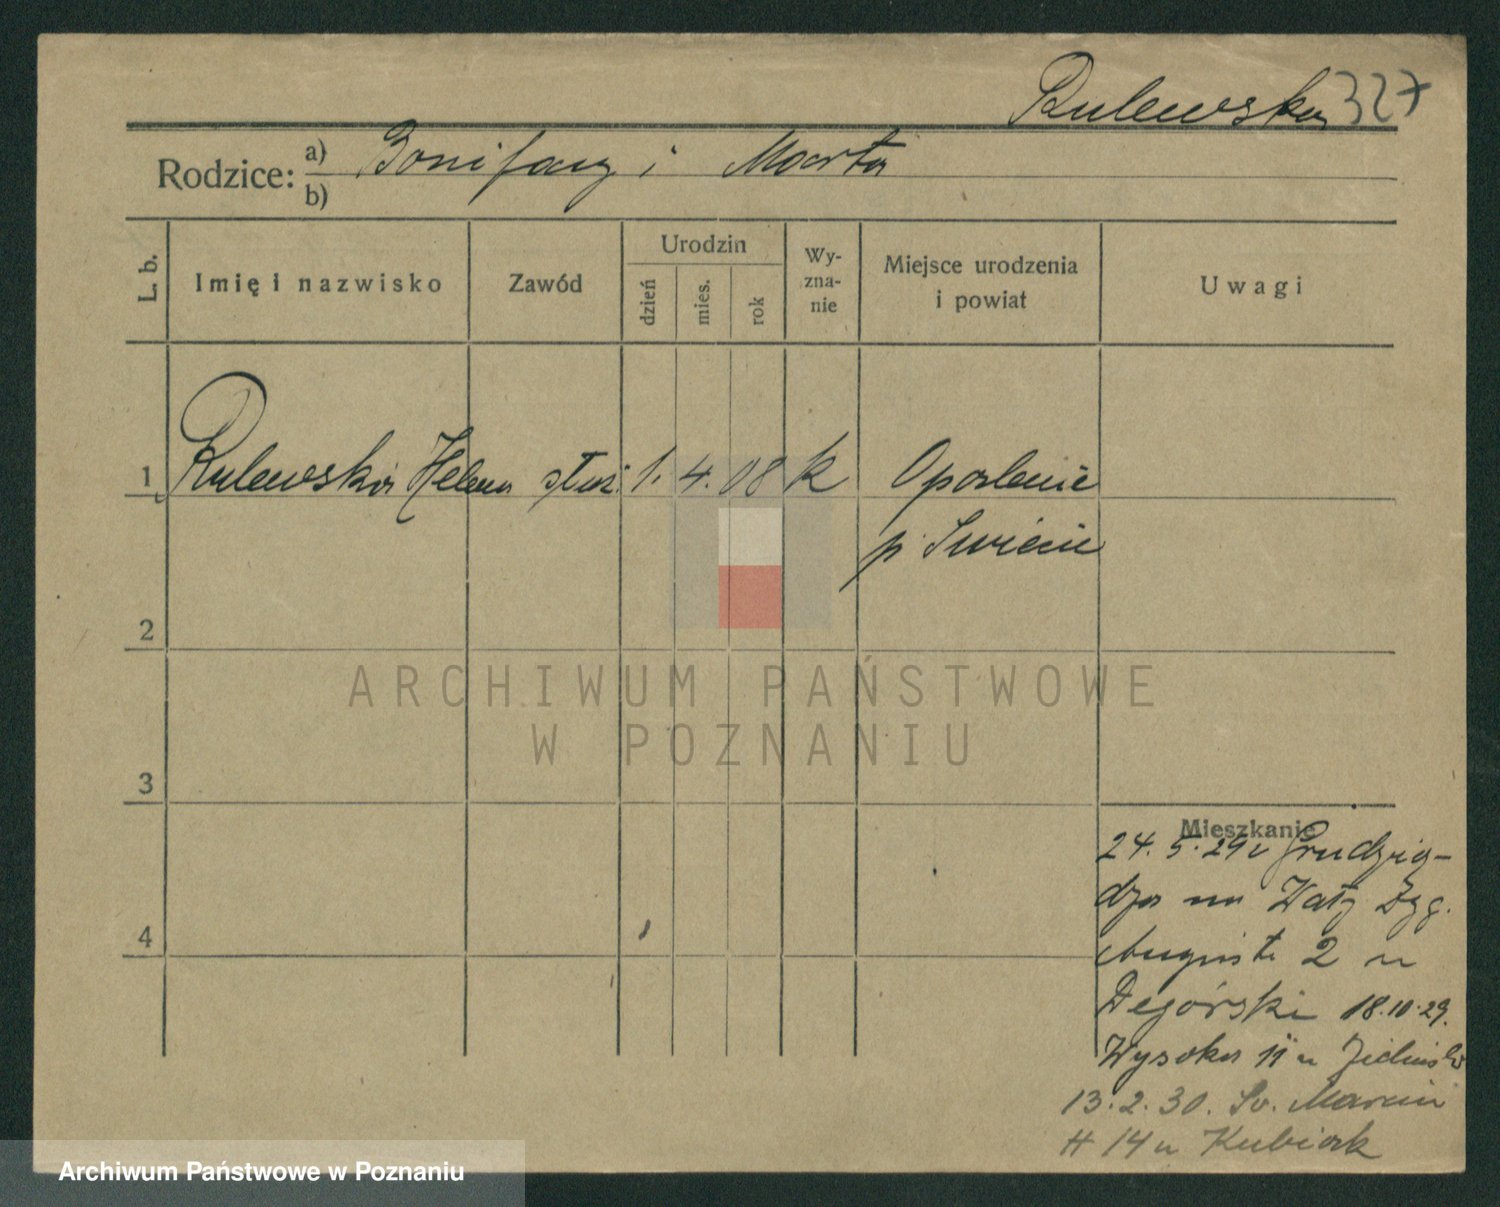 Rulewska 327
Rodzice: a) Bonifacy i Marta
b)
L. b.
Imię i nazwisko
Zawód
Urodzin
dzień
mies.
rok
Wy-
zna-
nie
Miejsce urodzenia
i powiat
Uwagi
1 Rulewska Helena służ. 1. 4. 08 k Oparlenie
p Świecie
2
3
4
Mieszkanie
24. 5. 29 z Grudzią-
dza na
2 u
Degórski 18.10.29.
Wysoka 11 u
13. 2. 30. Św. Marcin
14 u Kubiak
ARCHIWUM PAŃSTWOWE
W POZNANIU
Archiwum Państwowe w Poznaniu